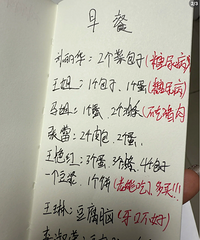 早餐
孙丽华：2个菜包子(糖尿病)
王姐：1个包子，1个蛋(糖尿病)
马姐：1个蛋，2个(不吃猪肉
张雷：2个肉包，2个蛋，
王艳红：3个蛋，4个包子
一个豆浆，1个饼(老能吃，多来!!!)
王琳：豆腐脑(牙口不好)
2/3